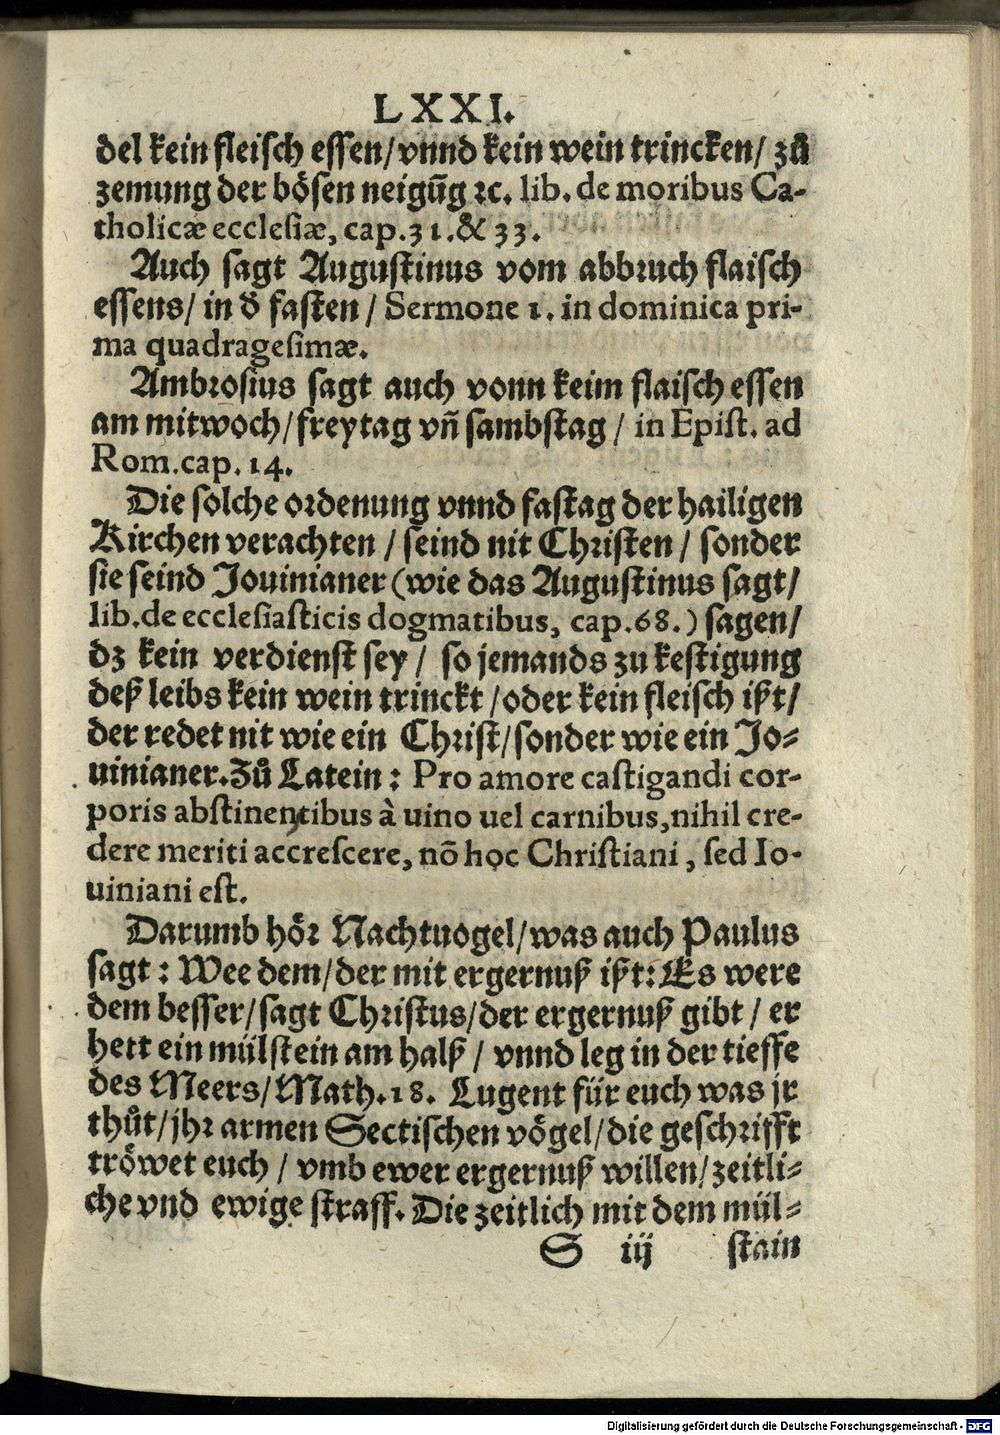 LXXI.
del kein fleisch essen/vnnd kein wein trincken/ zů
zemung der bösen neigūg ꝛc. lib. de moribus Ca-
tholicæ ecclesiæ, cap.31.& 33.
Auch sagt Augustinus vom abbruch flaisch
essens/ in d̕ fasten / Sermone 1. in dominica pri-
ma quadragesimæ.
Ambrosius sagt auch vonn keim flaisch essen
am mitwoch/freytag vn̄ sambstag / in Epist. ad
Rom.cap. 14.
Die solche ordenung vnnd fastag der hailigen
Kirchen verachten / seind nit Christen / sonder
sie seind Jouinianer (wie das Augustinus sagt/
lib.de ecclesiasticis dogmatibus, cap.68.) sagen/
dz kein verdienst sey / so jemands zu kestigung
deß leibs kein wein trinckt /oder kein fleisch ißt/
der redet nit wie ein Christ/sonder wie ein Jo-
uinianer.Zů Latein : Pro amore castigandi cor-
poris abstinentibus à uino uel carnibus,nihil cre-
dere meriti accrescere, nō hoc Christiani , sed Io-
uiniani est.
Darumb hör Nachtuogel/was auch Paulus
sagt : Wee dem/der mit ergernuß ißt: Es were
dem besser/sagt Christus/der ergernuß gibt / er
hett ein mülstein am halß / vnnd leg in der tieffe
des Meers/Math.18. Lugent für euch was jr
thůt/jhr armen Sectischen vögel/die geschrifft
tröwet euch / vmb ewer ergernuß willen/zeitli-
che vnd ewige straff. Die zeitlich mit dem mül-
S iij stain
Digitalisierung gefördert durch die Deutsche Forschungsgemeinschaft - DFG